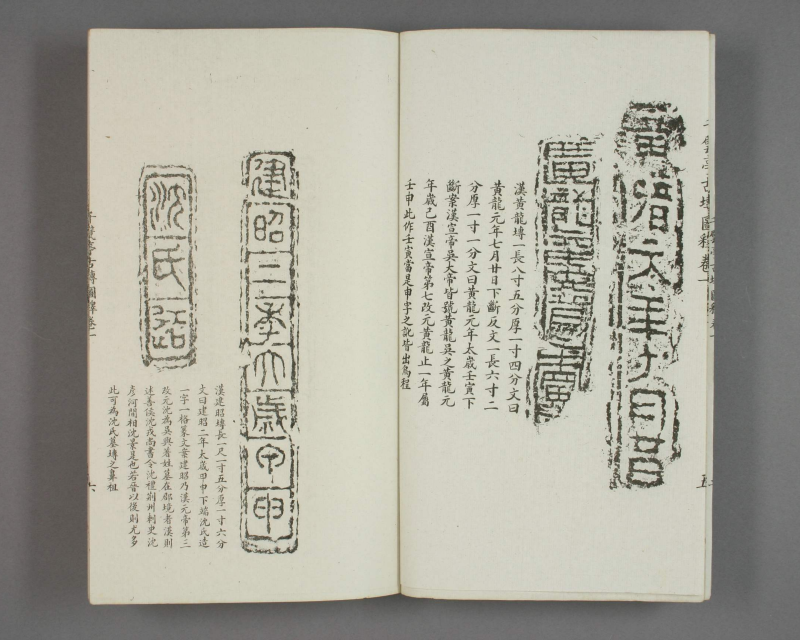 漢黃龍塼一長八寸五分厚一寸四分文曰
黃龍元年七月廿日下斷反文一長六寸二
分厚一寸一分文曰黃龍元年太歲壬寅下
斷案漢宣帝吳大帝皆號黃龍吳之黃龍元
年歲己酉漢宣帝第七改元黃龍止一年屬
壬申此作壬寅當是申字之訛皆出烏程
建昭三年大歲甲申
沈氏造
漢建昭塼長一尺一寸五分厚一寸六分
文曰建昭三年太歲甲申下端沈氏造
一字一格篆文案建昭乃漢元帝第三
改元沈為吳興著姓墓在郡境者漢則
述善侯沈戎尚書令沈禮荊州刺史沈
彥河間相沈景是也若晉以後則尤多
此可為沈氏墓塼之鼻祖
千甓亭古塼圖釋卷一
六